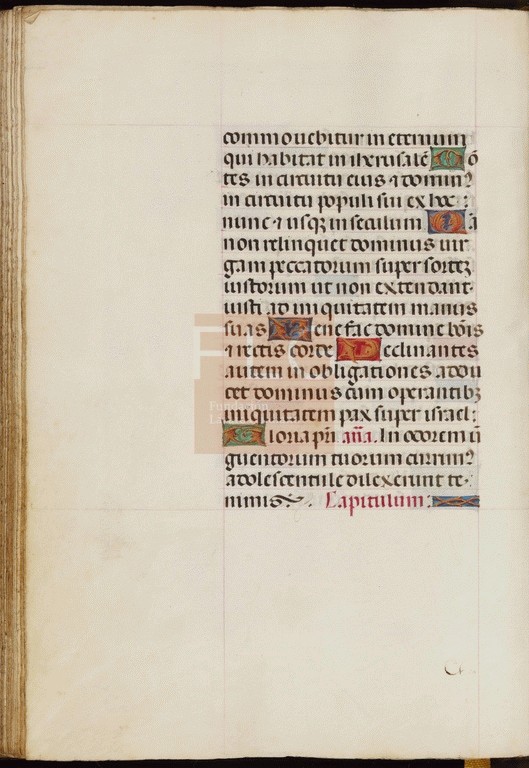 commouebitur in eternum
qui habitat in iherusalē Mō
tes in circuitu eius ⁊ dominꝰ
in circuitu populi sui ex hoc :
nunc ⁊ usqꝫ in seculum Quia
non relinquet dominus uir
gam peccatorum super sorteꝫ
iustorum ut non extendant
iusti ad iniquitatem manus
suas Bene fac domine bōis
⁊ rectis corde Declinantes
autem in obligationes addu
cet dominus cum operantibꝫ
iniquitatem pax super israel :
Gloria pr̄i. an̄a. In odorem ū
guentorum tuorum currimꝰ
adolescentule dilexerunt te
nimis. Capitulum :